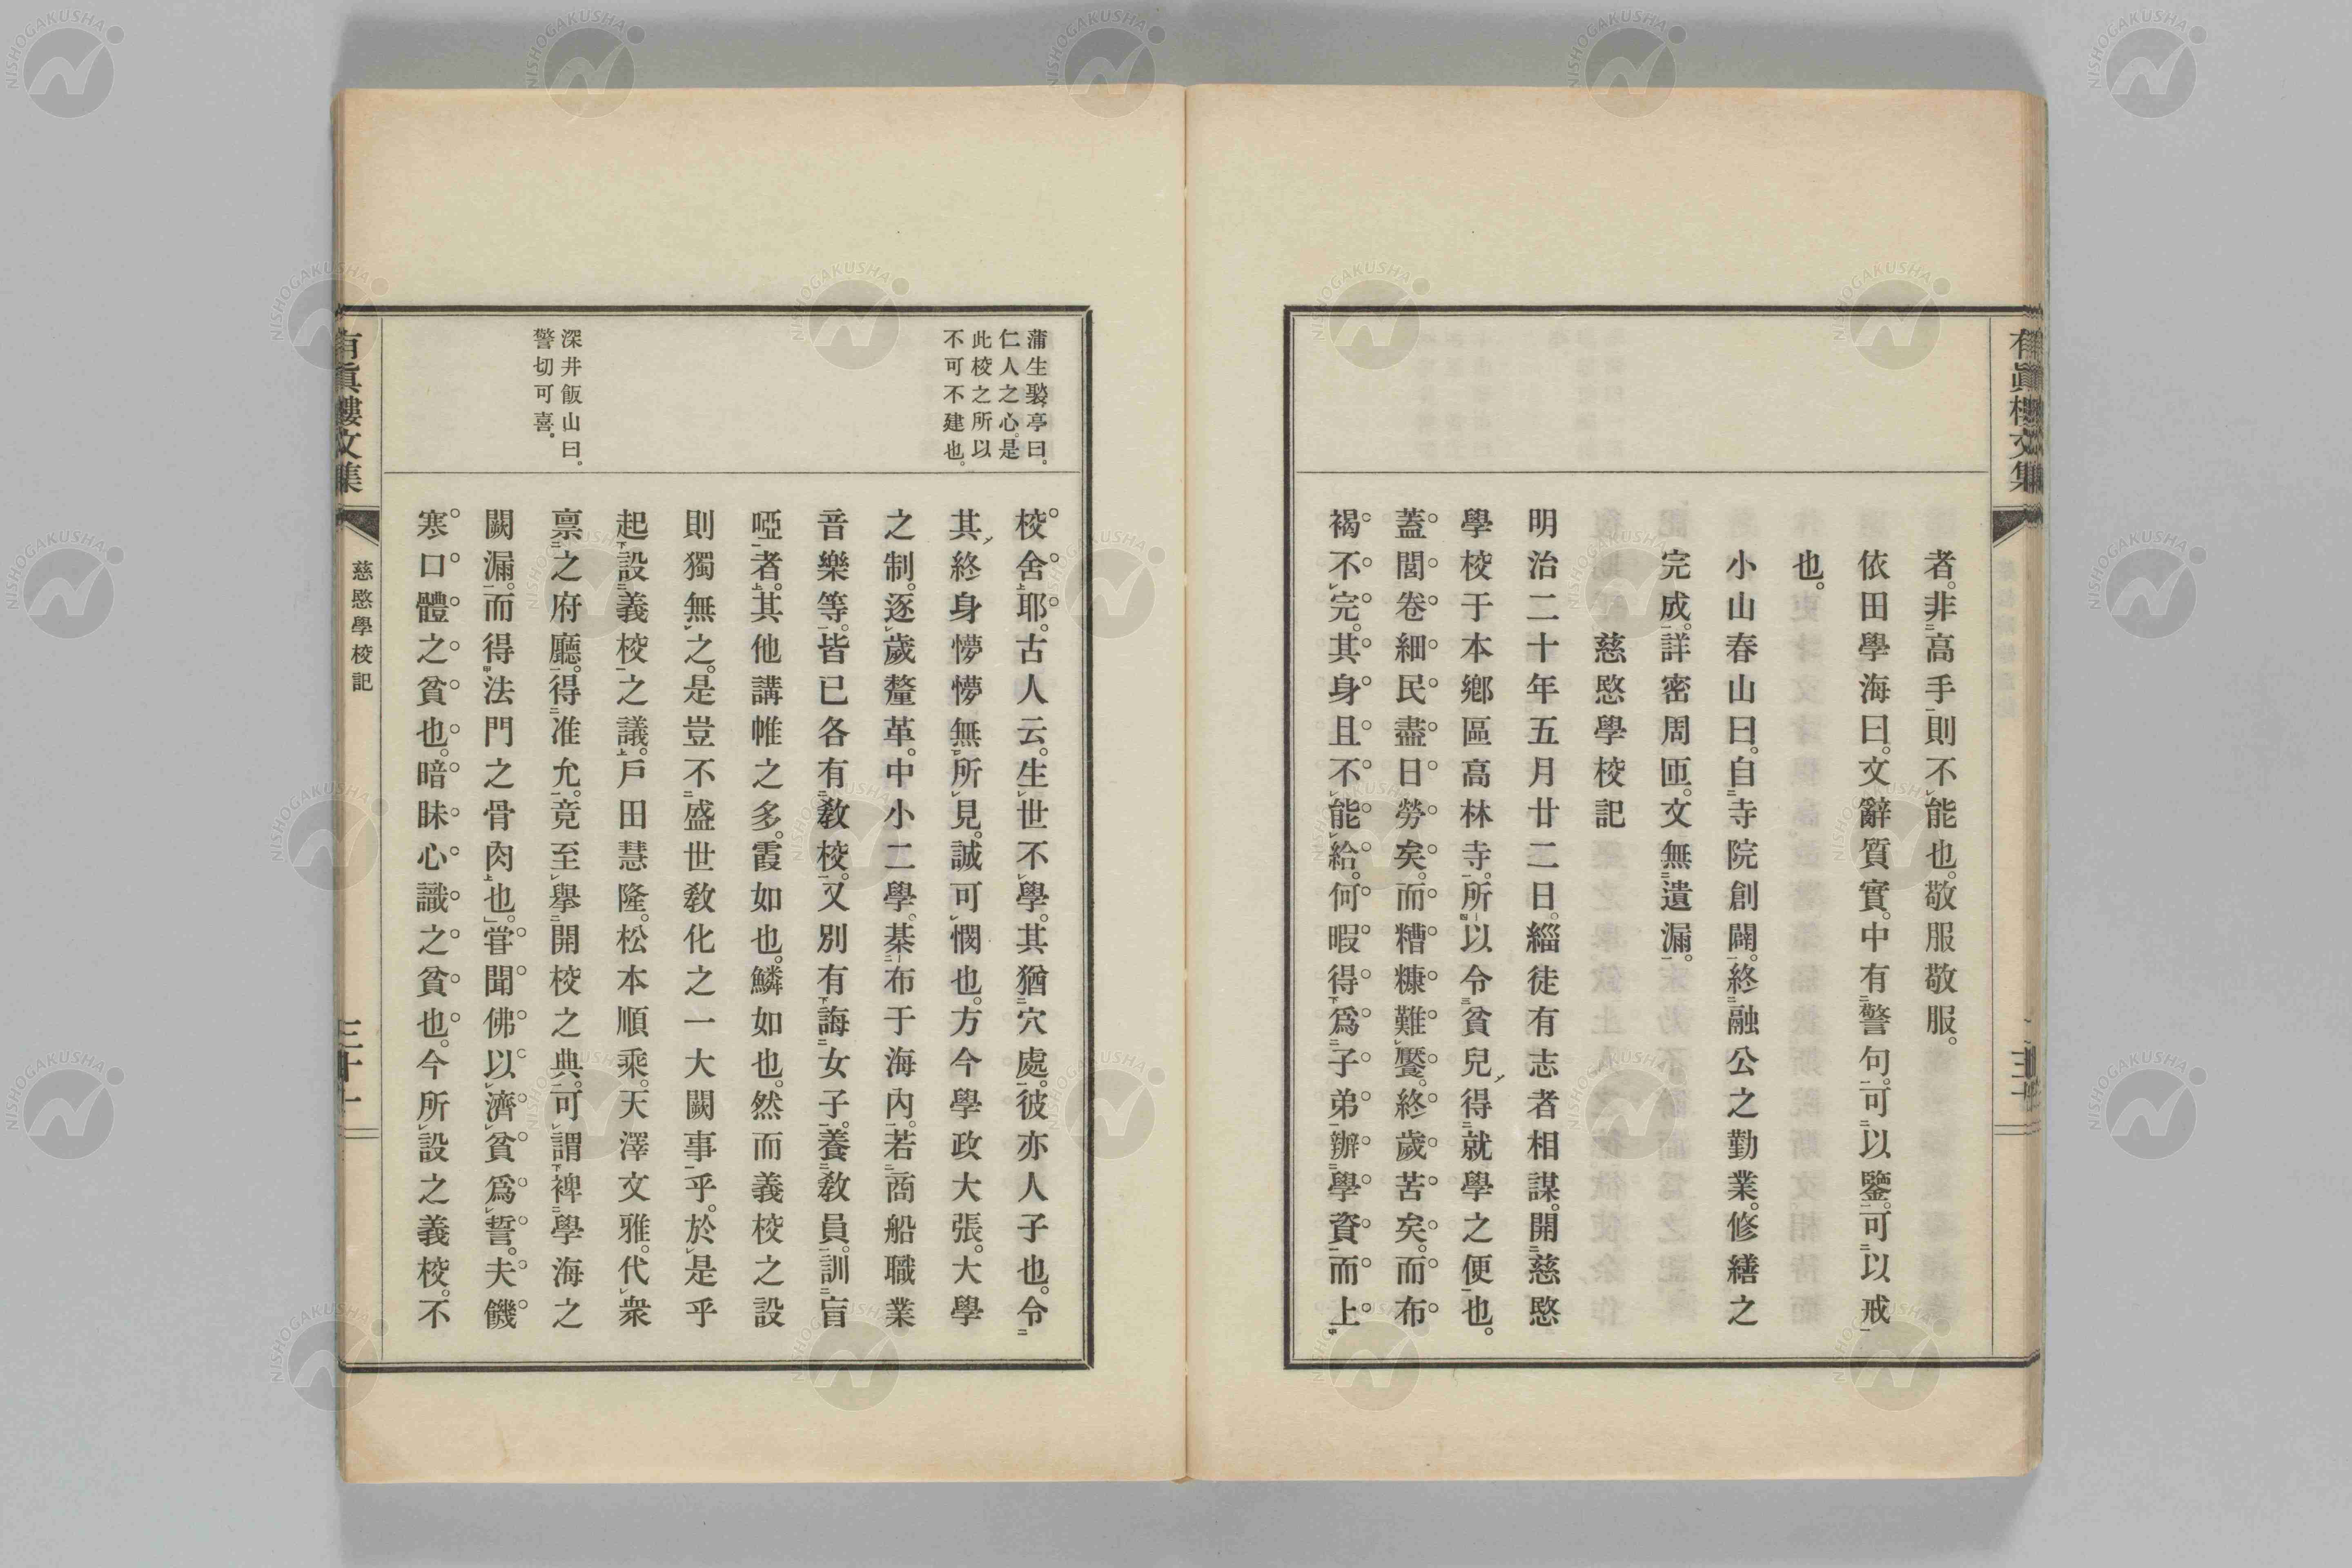 有眞樓文集
者。非高手則不能也。敬服敬服。
依田學海曰。文辭質實。中有警句。可以鑒。可以戒
也。
小山春山曰。自寺院創闢。終融公之勤業。修繕之
完成。詳密周匝。文無遺漏。
慈愍學校記
明治二十年五月廿二日。緇徒有志者相謀。開慈愍
學校于本鄉區高林寺。所以令貧兒得就學之便也。
蓋閭巷細民盡日勞矣。而糟糠難饜。終歲苦矣。而布
褐不完。其身且不能給。何暇得爲子弟辦學資而上
蒲生褧亭曰。
仁人之心。是
此校之所以
不可不建也。
深井飯山曰。
警切可喜。
校舍耶。古人云。生世不學。其猶穴處。彼亦人子也。令
其終身懜懜無所見。誠可憫也。方今學政大張。大學
之制。逐歲釐革。中小二學。棊布于海內。若商船職業
音樂等。皆已各有敎校。又別有誨女子。養敎員。訓盲
啞者。其他講帷之多。霞如也。鱗如也。然而義校之設
則獨無之。是豈不盛世敎化之一大闕事乎。於是乎
起設義校之議。戶田慧隆。松本順乘。天澤文雅。代衆
禀之府廳。得准允。竟至擧開校之典。可謂裨學海之
闕漏。而得法門之骨肉也。甞聞佛以濟貧爲誓。夫饑
寒口體之貧也。暗昧心識之貧也。今所設之義校。不
有眞樓文集
慈愍學校記
三十一